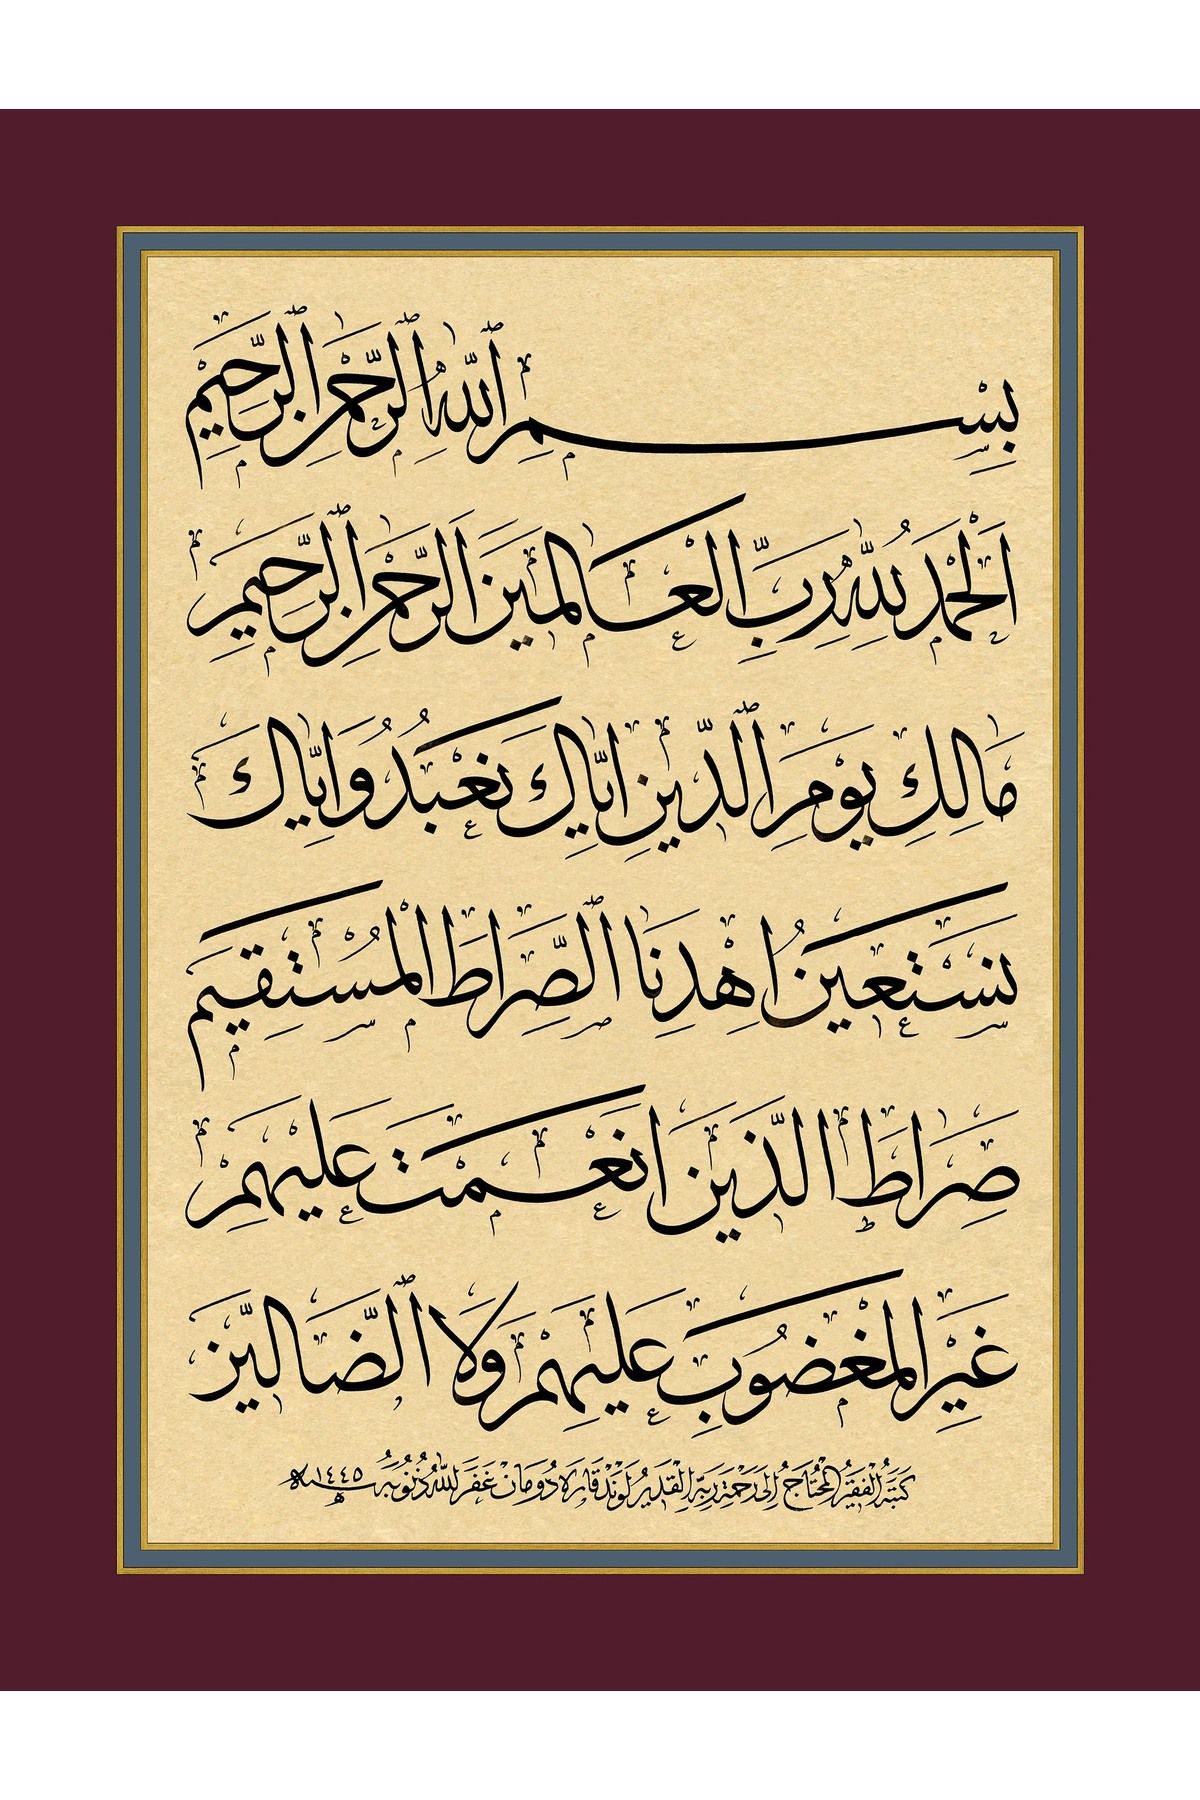 بِسْمِ ٱللهِ ٱلرَّحْمٰنِ ٱلرَّحِيمِ
اَلْحَمْدُ لِلّٰهِ رَبِّ الْعَالَمِينَ اَلرَّحْمٰنِ ٱلرَّحِيمِ
مَالِكِ يَوْمِ ٱلدِّينِ اِيَّاكَ نَعْبُدُ وَاِيَّاكَ
نَسْتَعِينُ اِهْدِنَا ٱلصِّرَاطَ الْمُسْتَقِيمَ
صِرَاطَ الَّذِينَ اَنْعَمْتَ عَلَيْهِمْ
غَيْرِ الْمَغْضُوبِ عَلَيْهِمْ وَلَا ٱلضَّالِّينَ
كَتَبَهُ الْفَقِيرُ الْمُحْتَاجُ اِلَى رَحْمَةِ رَبِّهِ الْقَدِيرِ لَوَنْد قَارَه دُومَان غَفَرَ اللهُ ذُنُوبَهُ سنة ١٤٤٥ ه